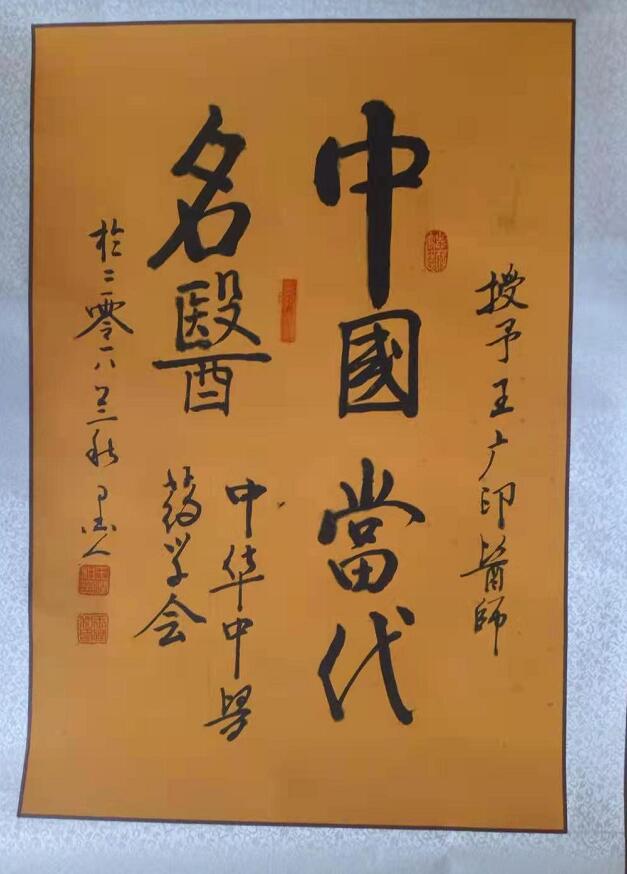 授予王广印醫師
中國當代
名醫
中华中醫
药学会
於二零一八